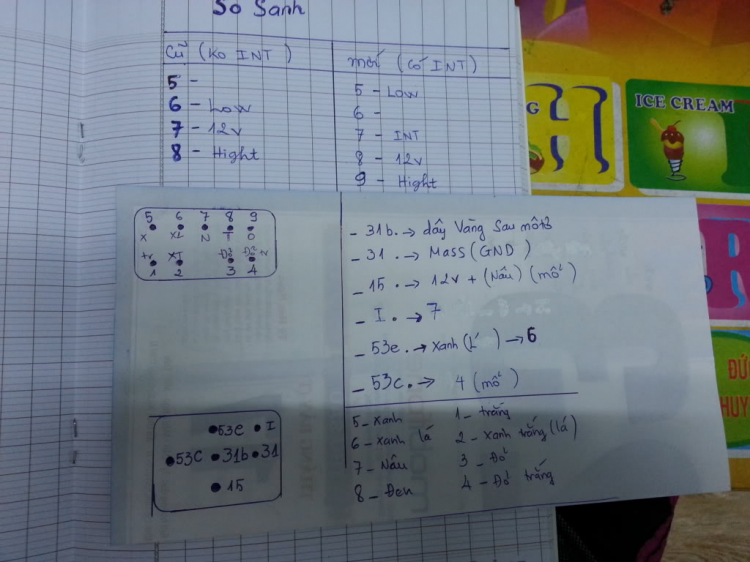 So Sanh
Cũ (Ko INT)
5 -
6 - Low
7 - 12v
8 - Hight
mới (Có INT)
5 - Low
6 -
7 - INT
8 - 12v
9 - Hight
ICE CREAM
G
5 6 7 8 9
X Xl N T O
tr XT Đỏ Đỏ tr
1 2 3 4
- 31b. → dây Vàng sau môtơ
- 31. → Mass (GND)
- 15. → 12v + (Nâu) (mô²)
- I. → 7
- 53e. → xanh (lá) → 6
- 53c. → 4 (mô²)
53e I
53C 31b 31
15
5 - xanh
6 - xanh lá
7 - Nâu
8 - Đen
1 - trắng
2 - xanh trắng (lá)
3 - Đỏ
4 - Đỏ trắng
R
ĐỨ
HUY